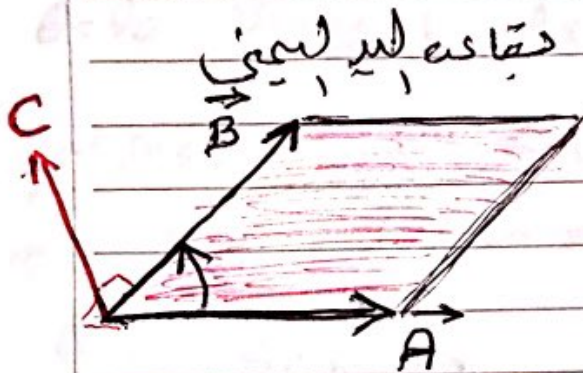 بقاعدة اليد اليمنى
B
C
A